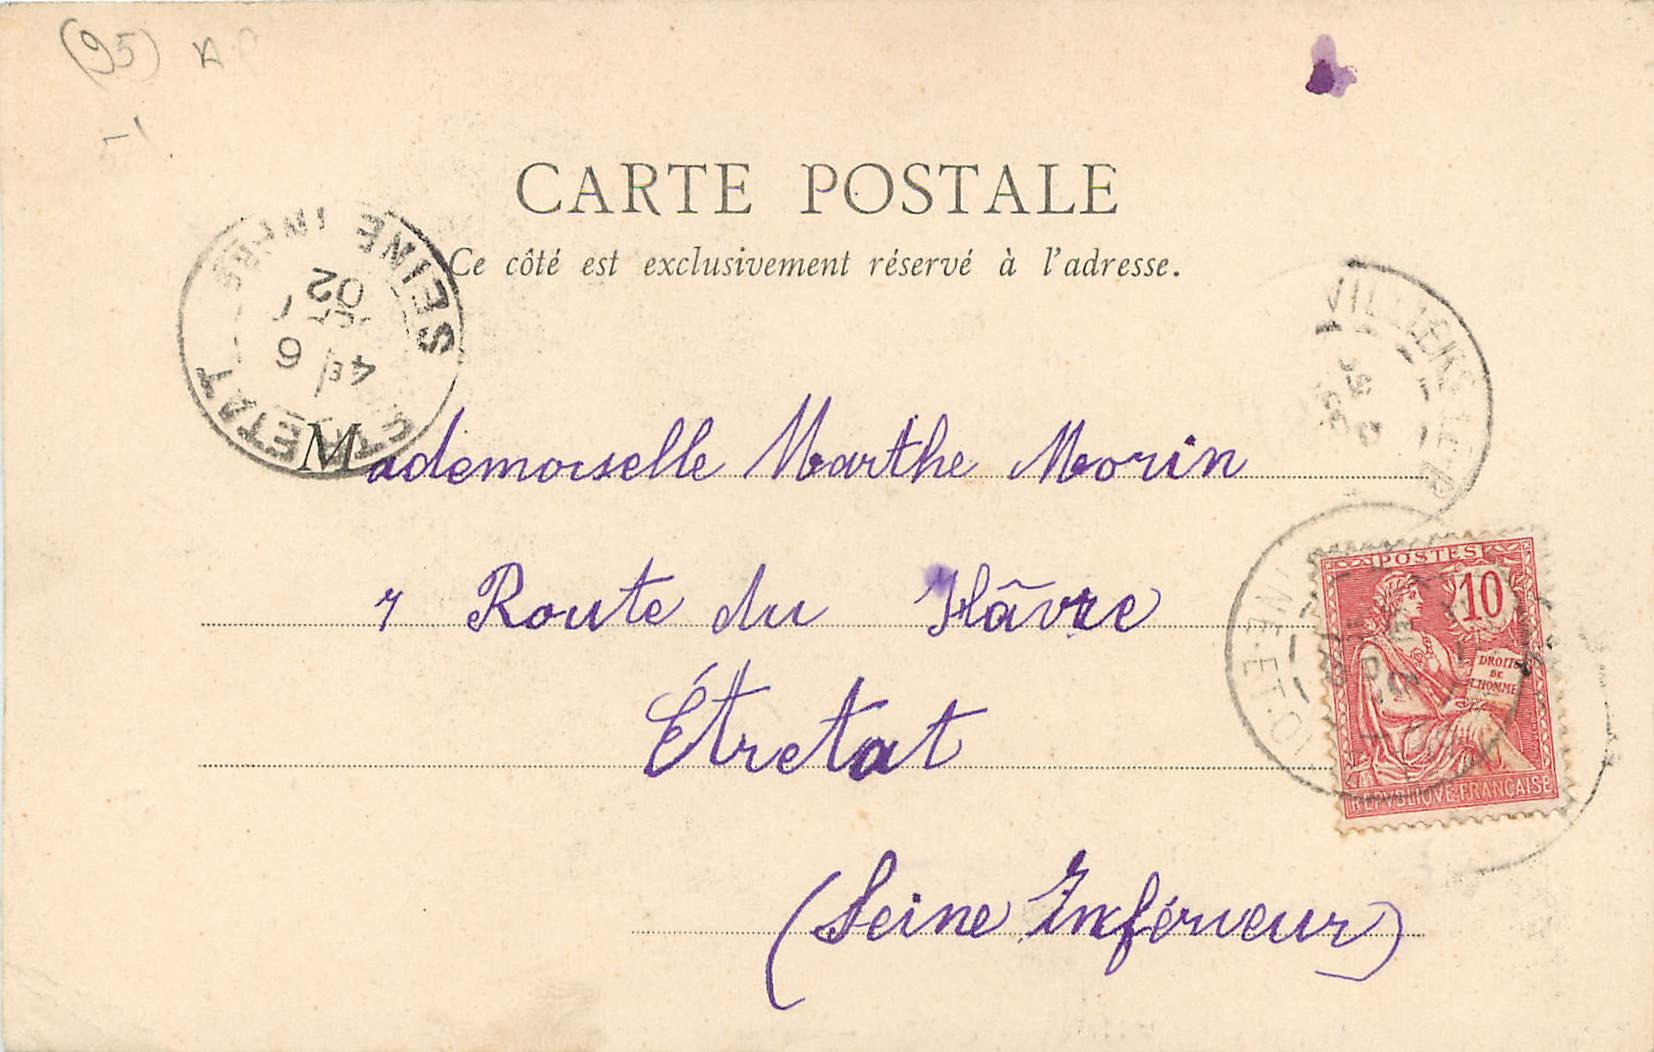 (95)
CARTE POSTALE
Ce côté est exclusivement réservé à l'adresse.
ETRETAT
SEINE INFRE
4E
6
02
Mademoiselle Marthe Morin
7 Route du Hâvre
Étretat
(Seine Inférieur)
POSTES
10
DROITS
DE
L'HOMME
REPVBLIQVE FRANÇAISE
SEINE-ET-OISE